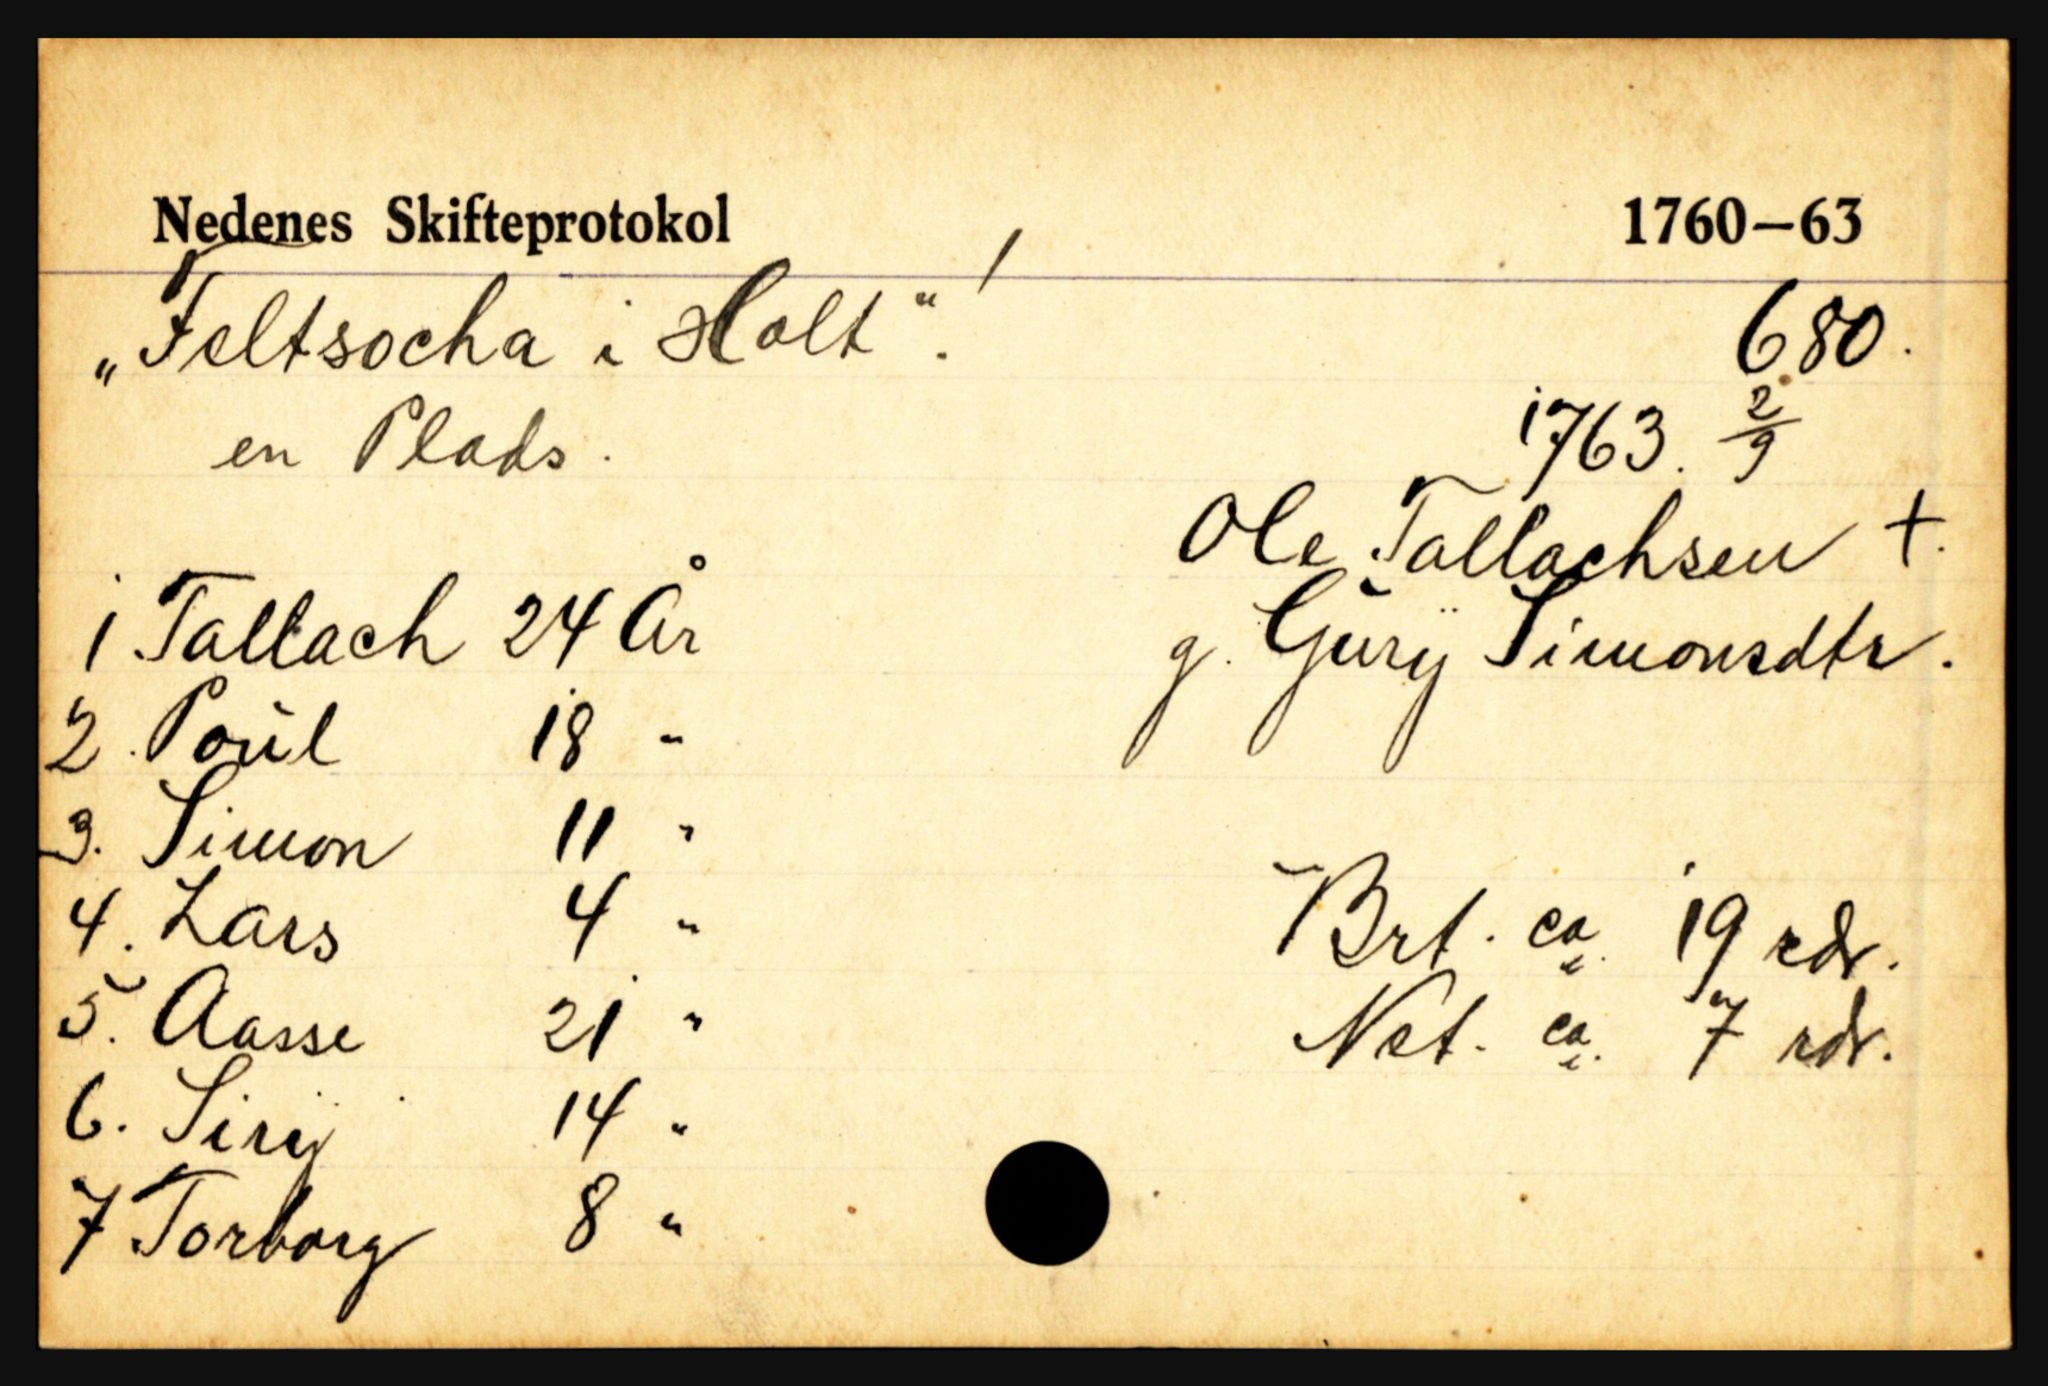 Nedenes Skifteprotokol 1760–63
„Feltsocha i Holt“!
680.
en Plads.
1763. 2/9
Ole Tallachsen +.
g. Gury Simonsdtr.
1 Tallach 24 År
2. Poul 18 "
3. Simon 11 "
4. Lars 4 "
5. Aasse 21 "
6. Sirÿ 14 "
7 Torborg 8 "
Brt. ca. 19 rdr.
Net. ca. 7 rdr.